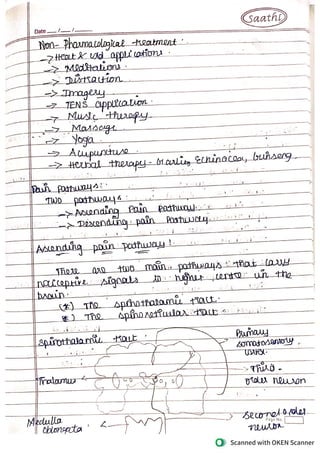 Saathi
Date __/__/____
Non-Pharmacological treatment:
-> Heat & cold applications.
-> Meditations.
-> Distraction.
-> Imagery
-> TENS application.
-> Music therapy.
-> Massage
-> Yoga.
-> Acupuncture
-> Herbal therapy- Garlic, Echinacea, Ginseng.
Pain Pathways:
Two pathways:
-> Ascending Pain Pathway.
-> Descending pain Pathway
Ascending pain pathway:
There are two main pathways that carry
nociceptive signals to higher centre in the
brain.
(*) The spinothalamic tract.
*) The spinoreticular tract.
spinothalamic tract.
Primary
somatosensory
Thalamus
Third
order neuron
Medulla
oblongata
Second order
neuron
Page No.
Scanned with OKEN Scanner